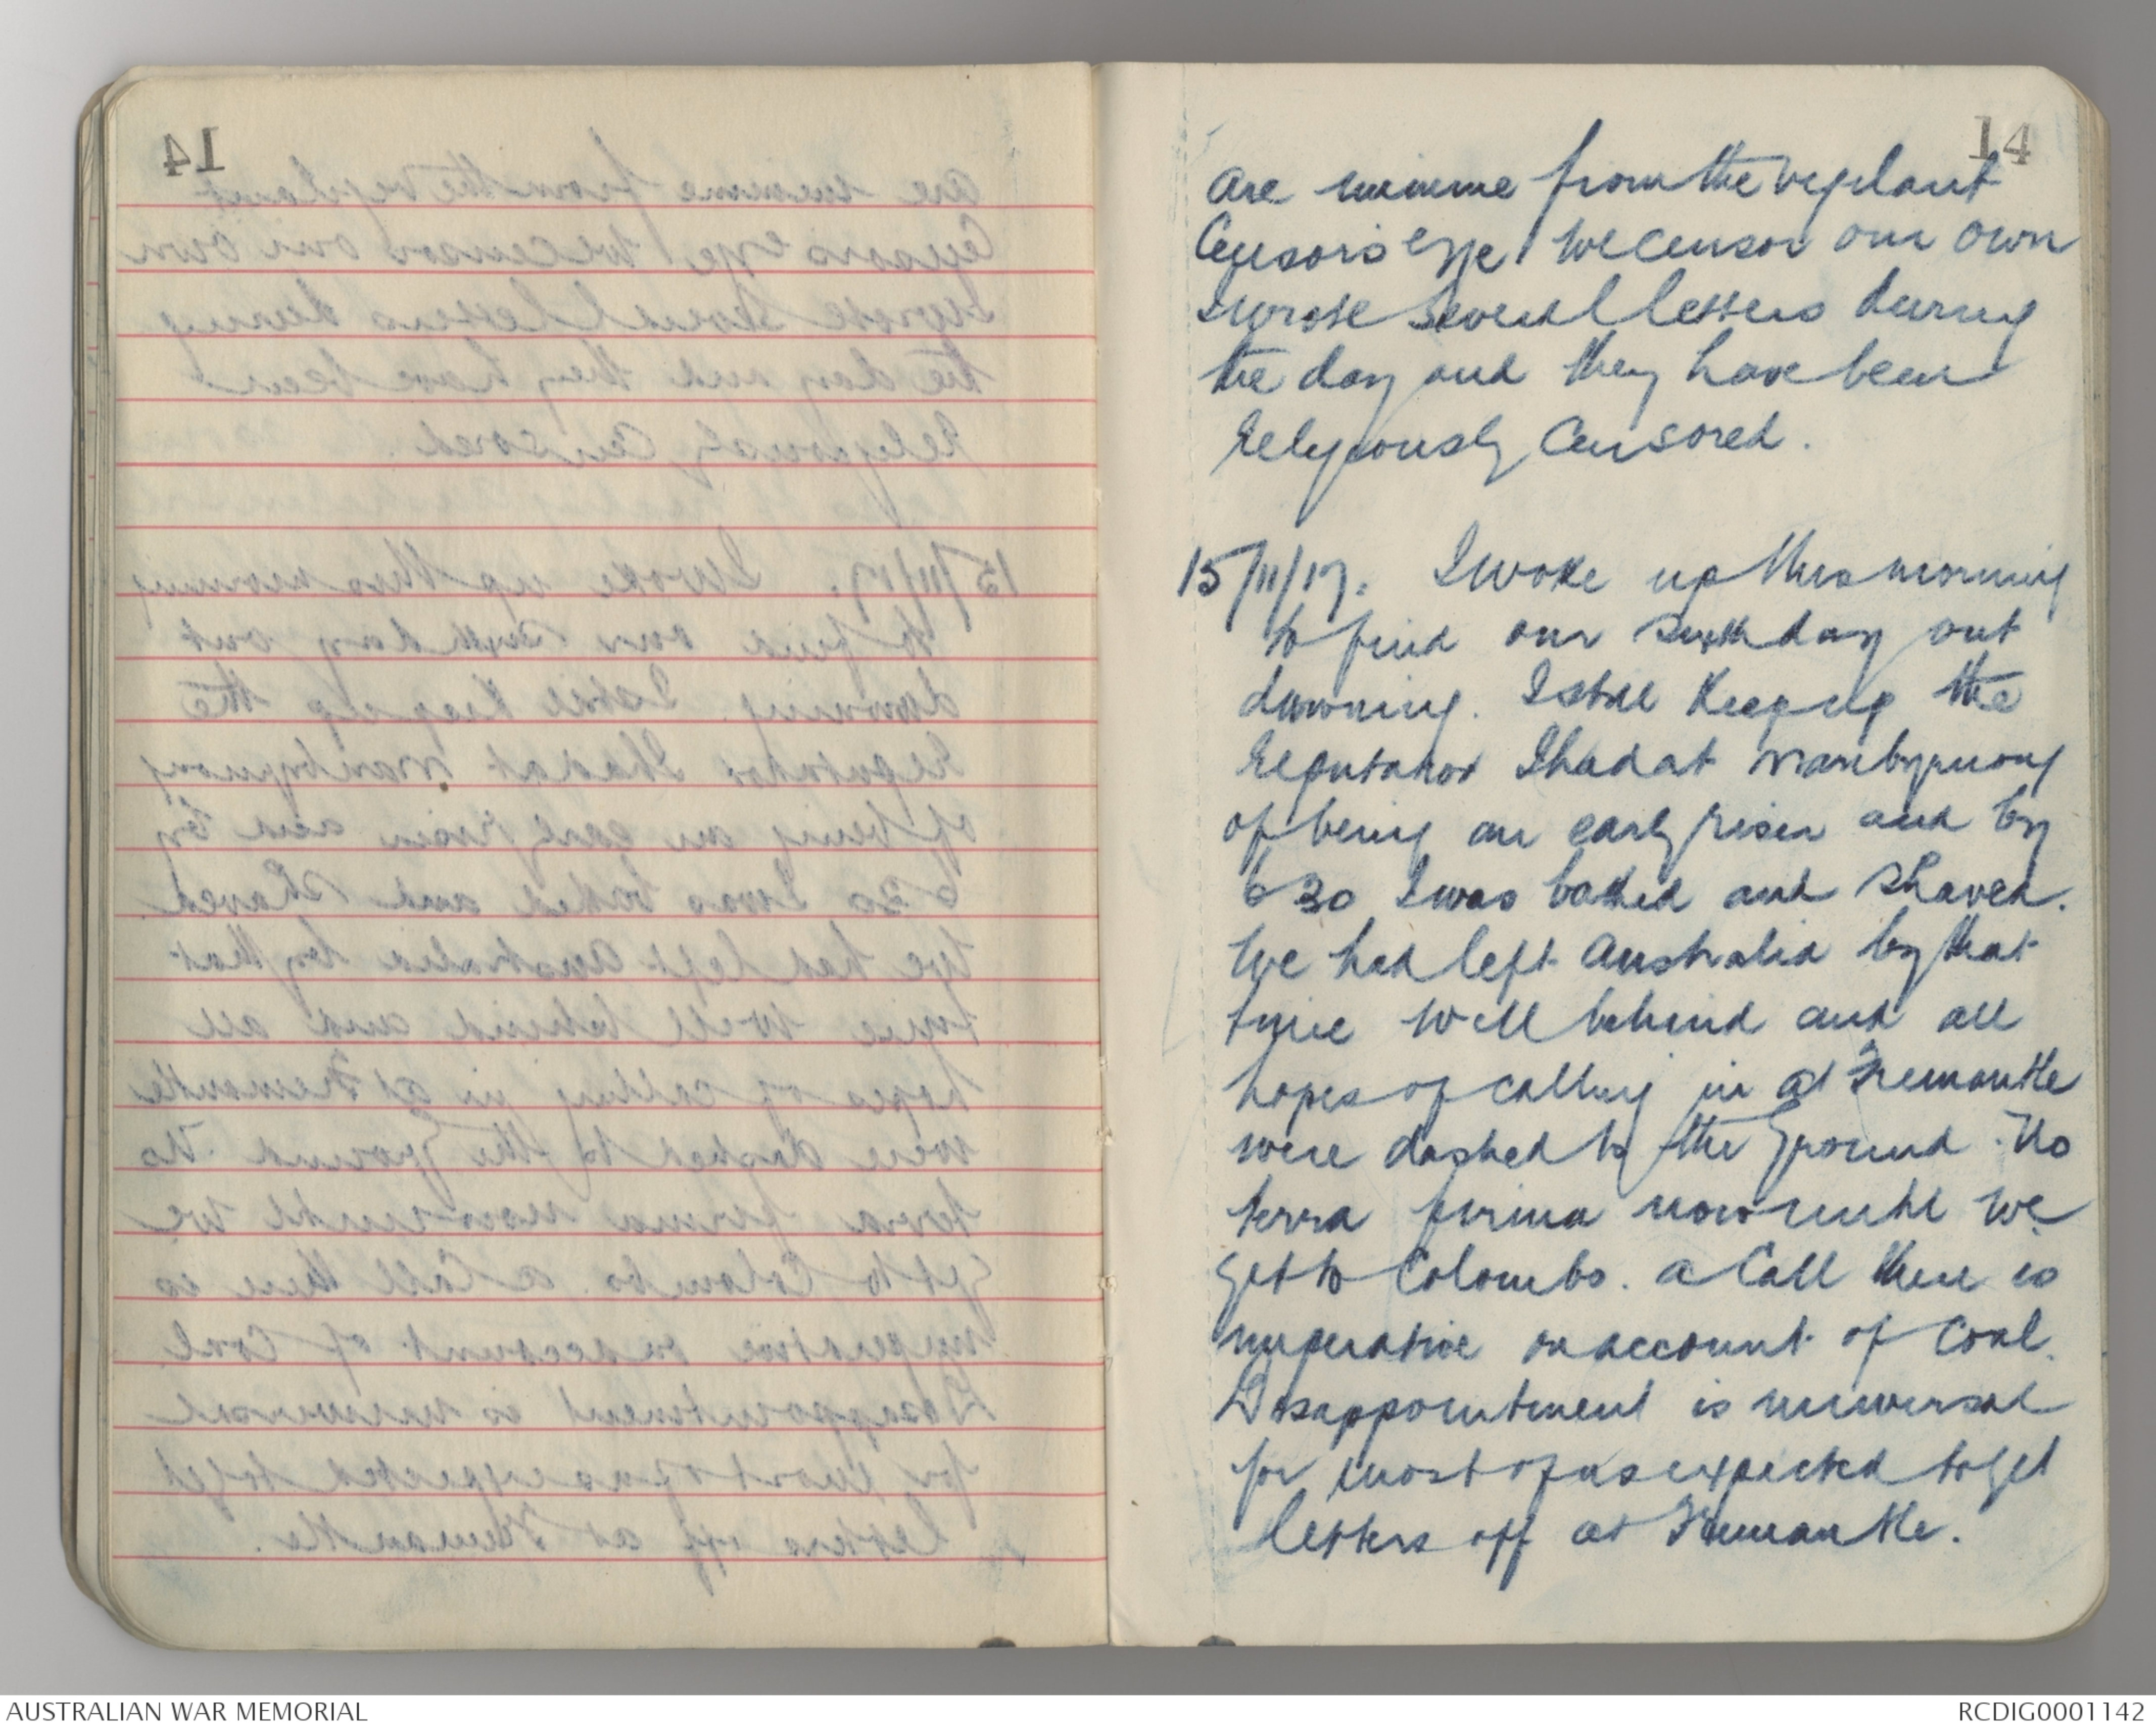 14
are immune from the vigilant
Censors eye. We censor our own
I wrote several letters during
the day and they have been
religiously Censored.
15/11/17. I woke up this morning
to find our sixth day out
dawning. I still keep up the
reputation I had at Maribyrnong
of being an early riser and by
6 30 I was bathed and shaved.
We had left Australia by that
time well behind and all
hopes of calling in at Fremantle
were dashed to the ground. No
terra firma now until we
get to Colombo. A call there is
imperative on account of coal.
Disappointment is universal
for most of us expected to get
letters off at Fremantle.
AUSTRALIAN WAR MEMORIAL
RCDIG0001142